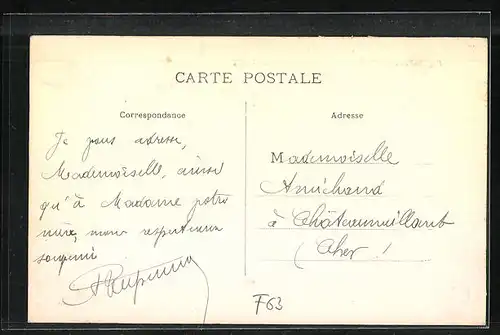 CARTE POSTALE
Correspondance
Adresse
Je vous adresse,
Mademoiselle, ainsi
qu'à Madame votre
mère, mon respectueux
souvenir
Mademoiselle
Amichaud
à Châteaumeillant
(Cher)
F63